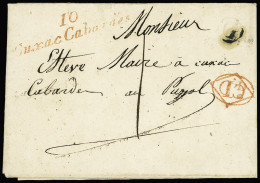 10
Cuxac Cabardes
Monsieur
Estève Maire à cuxac
Cabardes au Pujol
1